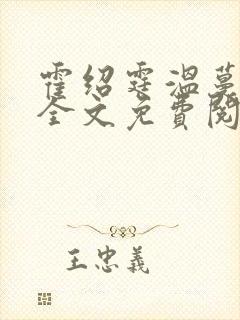 霍绍霆温蔓
全文免费阅
王忠義